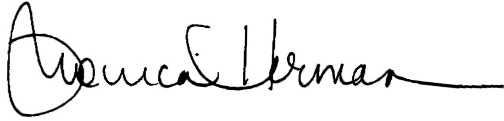 Monica Herman